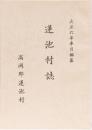 大正六年年月編纂
蓮池村誌
高岡郡蓮池村